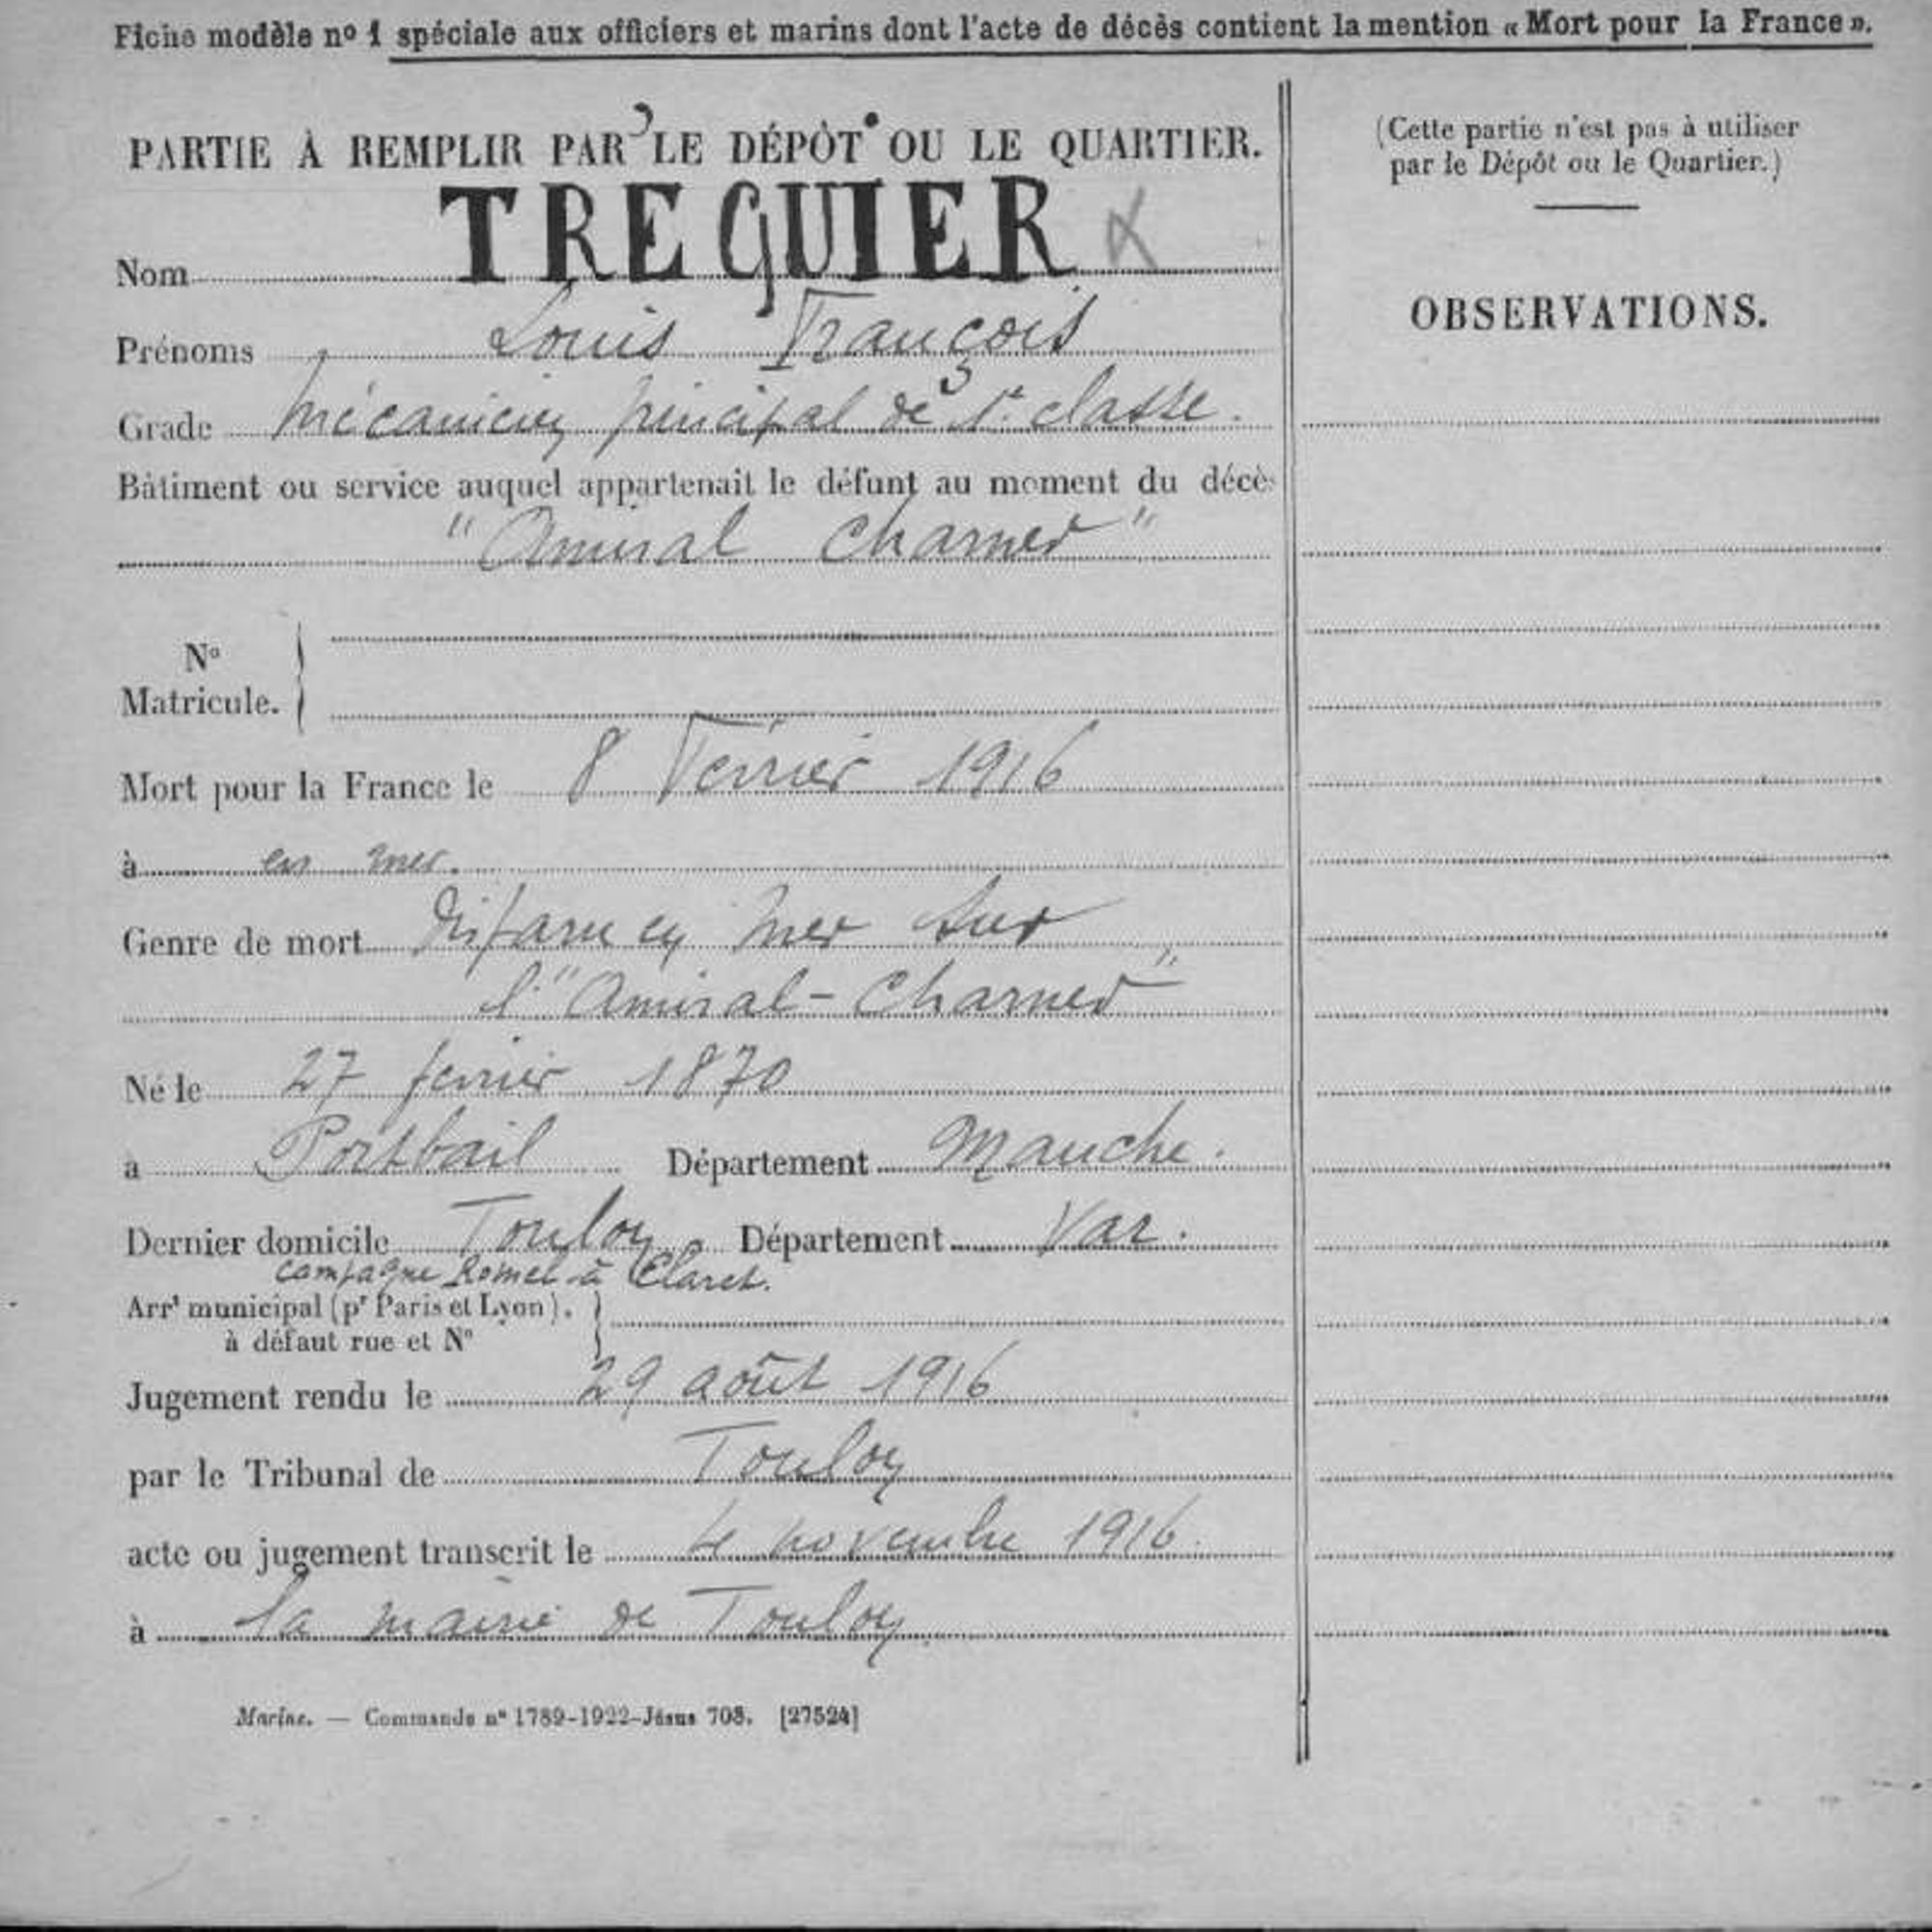 Fiche modèle nº 1 spéciale aux officiers et marins dont l'acte de décès contient la mention « Mort pour la France ».
PARTIE À REMPLIR PAR LE DÉPÔT OU LE QUARTIER.
Nom TREGUIER
Prénoms Louis François
Grade Mécanicien principal de 1e classe.
Bâtiment ou service auquel appartenait le défunt au moment du décès
"Amiral Charner"
Nº
Matricule.
Mort pour la France le 8 Février 1916
à en mer.
Genre de mort Disparu en mer sur
l'"Amiral-Charner"
Né le 27 fevrier 1870
a Portbail Département Manche.
Dernier domicile Toulon Département Var.
campagne Romel à Claret.
Arrt municipal (pr Paris et Lyon).
à défaut rue et Nº
Jugement rendu le 29 août 1916
par le Tribunal de Toulon
acte ou jugement transcrit le 4 novembre 1916.
à la mairie de Toulon.
Marine. — Commande nº 1789-1922-Jésus 708. [27524]
(Cette partie n'est pas à utiliser
par le Dépôt ou le Quartier.)
OBSERVATIONS.